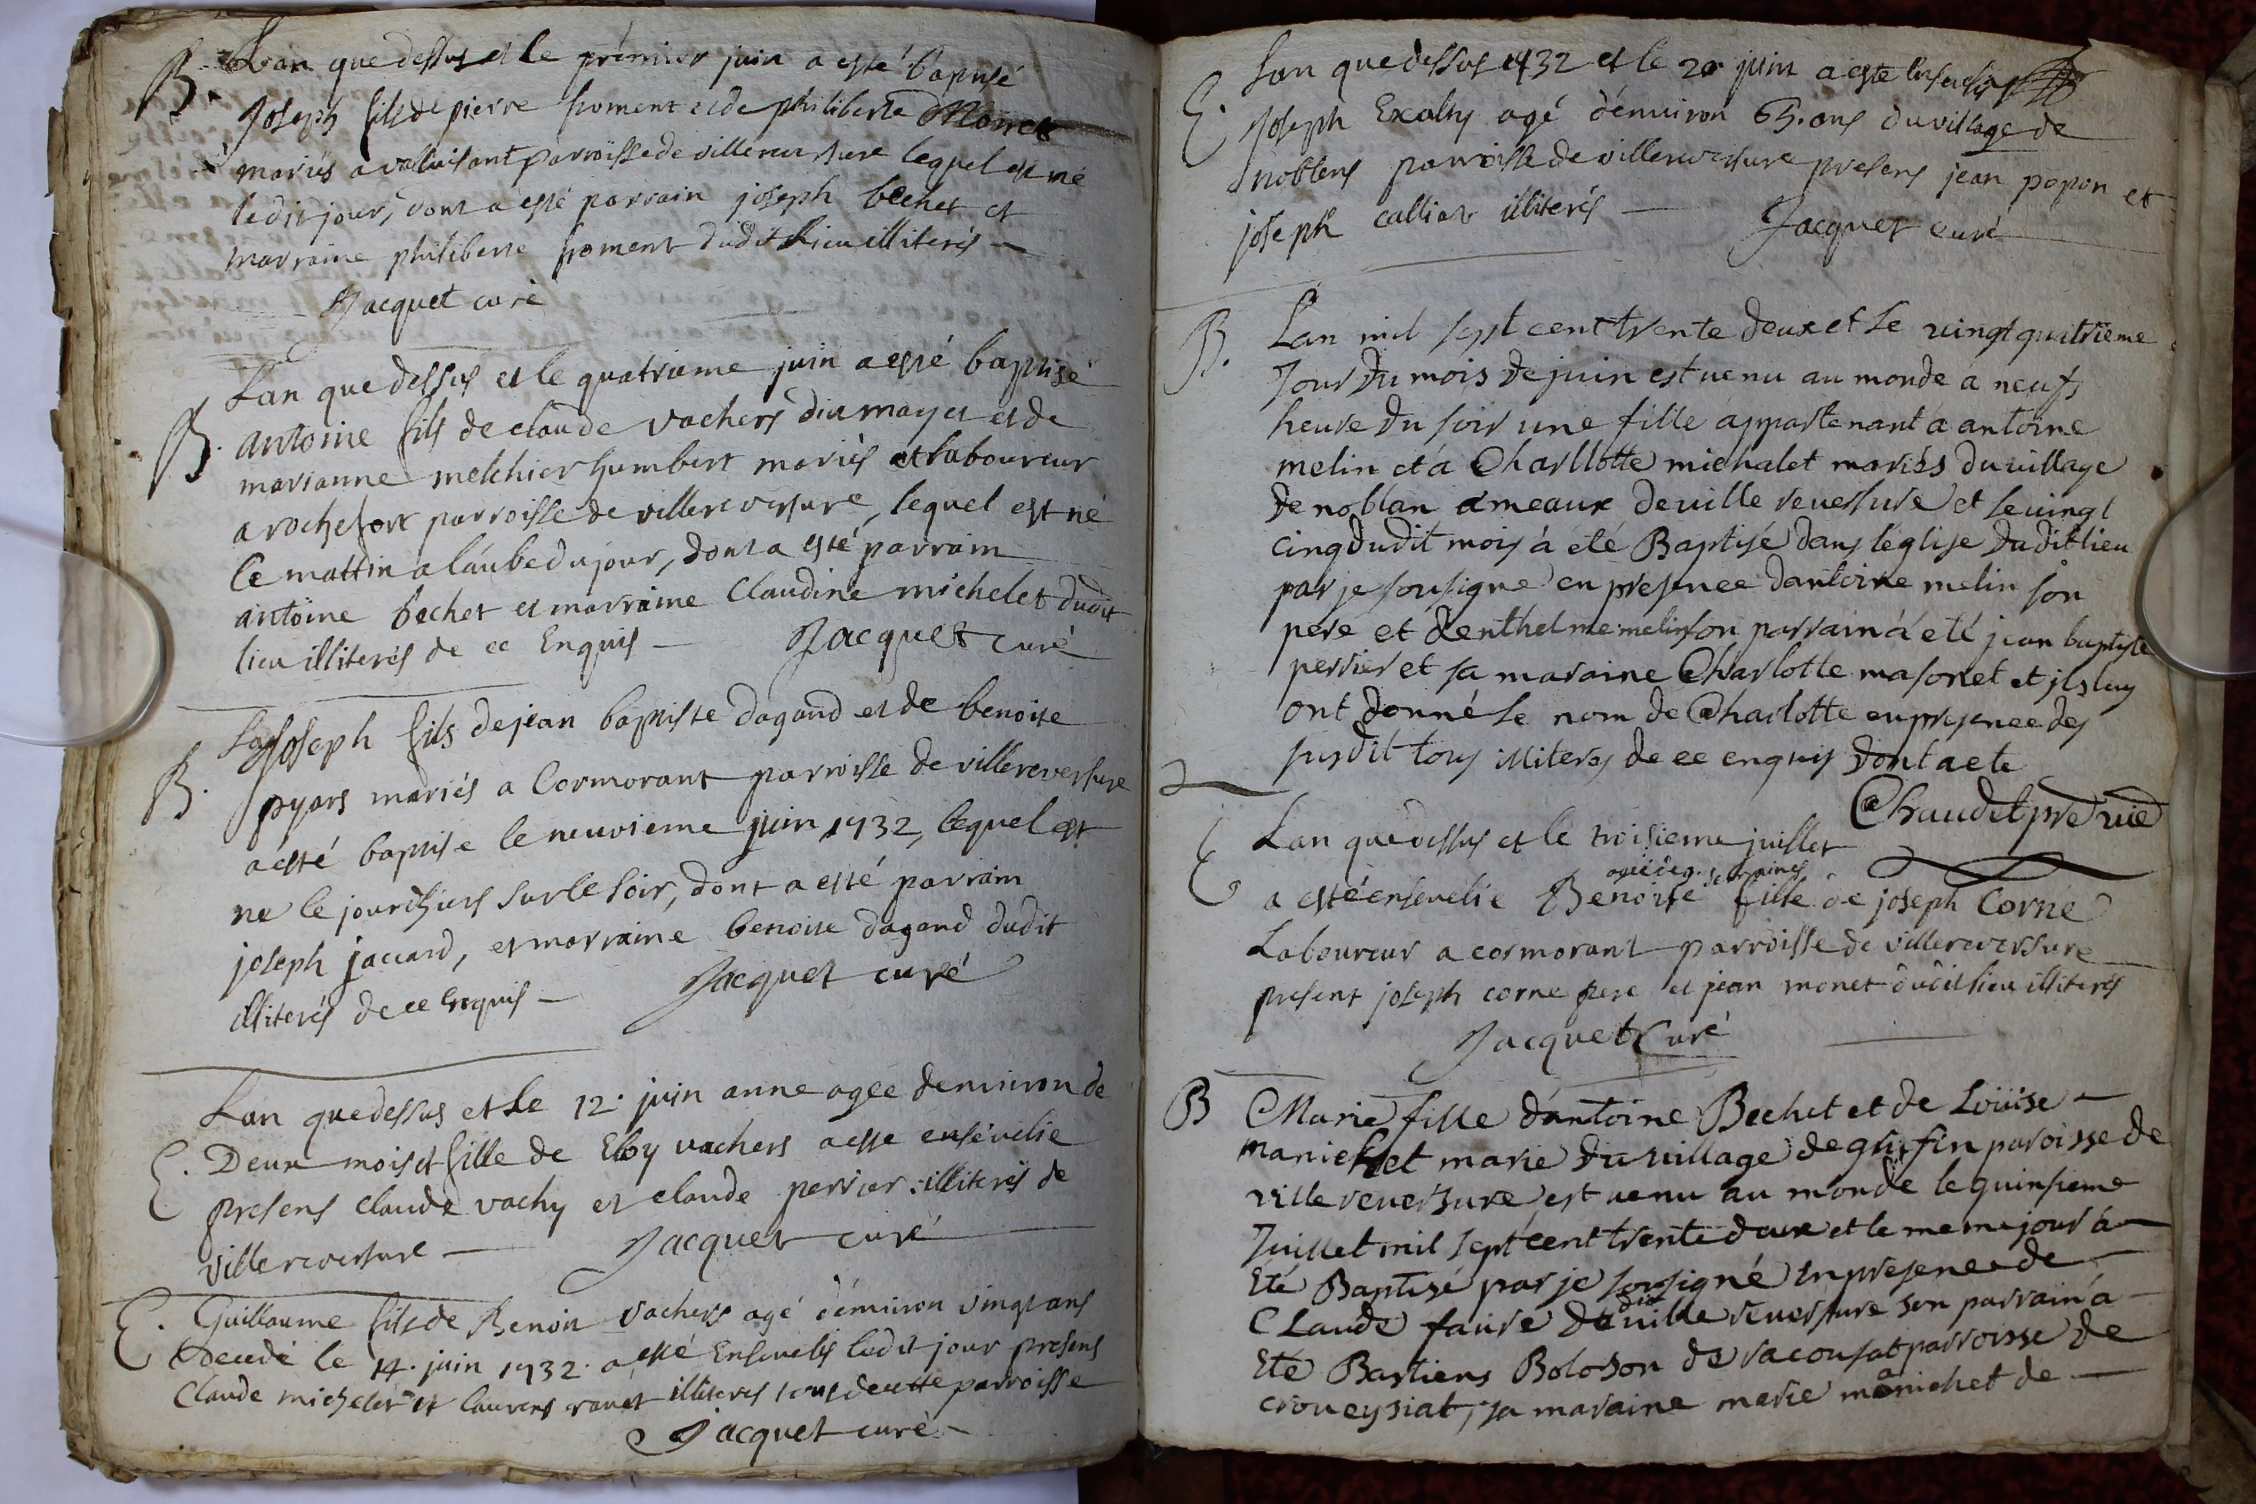 B. Lan que dessus et le premier juin a esté baptisé
Joseph fils de pierre froment et de philiberte Monet
mariés a valluisant parroisse de villereversure lequel est né
ledit jour, dont a esté parrain joseph bechet et
marraine philiberte froment dudit lieu illiterés
Jacquet curé
Lan que dessus et le quatrieme juin a esté baptisé
B. antoine fils de claude vachers dit mayet et de
marianne melchior humbert mariés et laboureur
a rochefort parroisse de villereversure, lequel est né
ce mattin a l'aube du jour, dont a esté parrain
antoine bechet et marraine Claudine michelet dudit
lieu illiterés de ce Enquis Jacquet curé
B. Joseph fils de jean baptiste dagand et de benoite
pyars mariés a Cormorant parroisse de villereversure
a esté baptisé le neuvieme juin 1732, lequel est
né le jour d'hiers sur le soir, dont a esté parrain
joseph jaccard, et marraine benoite dagand dudit
illiterés de ce Enquis Jacquet curé
Lan que dessus et le 12. juin anne agée denviron de
E. Deux mois et fille de Eloy vachers a esse ensévelie
presens claude vachy et claude perrier illiterés de
villereversure Jacquet curé
E. Guillaume fils de Benoit vachers agé d'environ vingt ans
decedé le 14. juin 1732. a esté Ensevelis ledit jour presens
Claude michelet et laurens ravet illiterés tous de cette parroisse
Jacquet curé
Lan que dessus 1732 et le 20 juin a este ensevelis
E. Joseph Exalty agé d'environ 65. ans du village de
noblens parroisse de villereversure presens jean popon et
joseph calliat illiterés Jacquet curé
B. Lan mil sept cent trente deux et le vingt quatrieme
Jour Du mois de juin est venu au monde a neufs
heure du soir une fille appartenant a antoine
melin et a Charllotte michalet mariés du village
de noblan ameaux de ville reversure et le vingt
cinq dudit mois à eté Baptisé dans léglise dudit lieu
par je sousigne en presence dantoine melin son
pere et denthelme melin son parrain à eté jean baptiste
perrier et sa maraine Charlotte masonet et ils luy
ont donné le nom de Charlotte en presence des
susdit tous illiteres de ce enquis dont acte
Chaudet pre vic
E Lan que dessus et le troisieme juillet
agée de 9. semaines
a esté ensevelie Benoite fille de joseph Corne
Laboureur a cormorant parroisse de villereversure
present joseph corne pere et jean monet dudit lieu illiterés
Jacquet Curé
B Marie fille d'antoine Bechet et de Loüise
manichet marie du village de grifin paroisse de
ville reversure est venu au monde le quinsieme
Juillet mil sept cent trente deux et le meme jour à
Eté Baptisé par je sousigné en presence de
Claude faure dudit ville reversure son parrain à
Eté Bastiens Boloson de racousat parroisse de
croueysiat, sa maraine marie manichet de